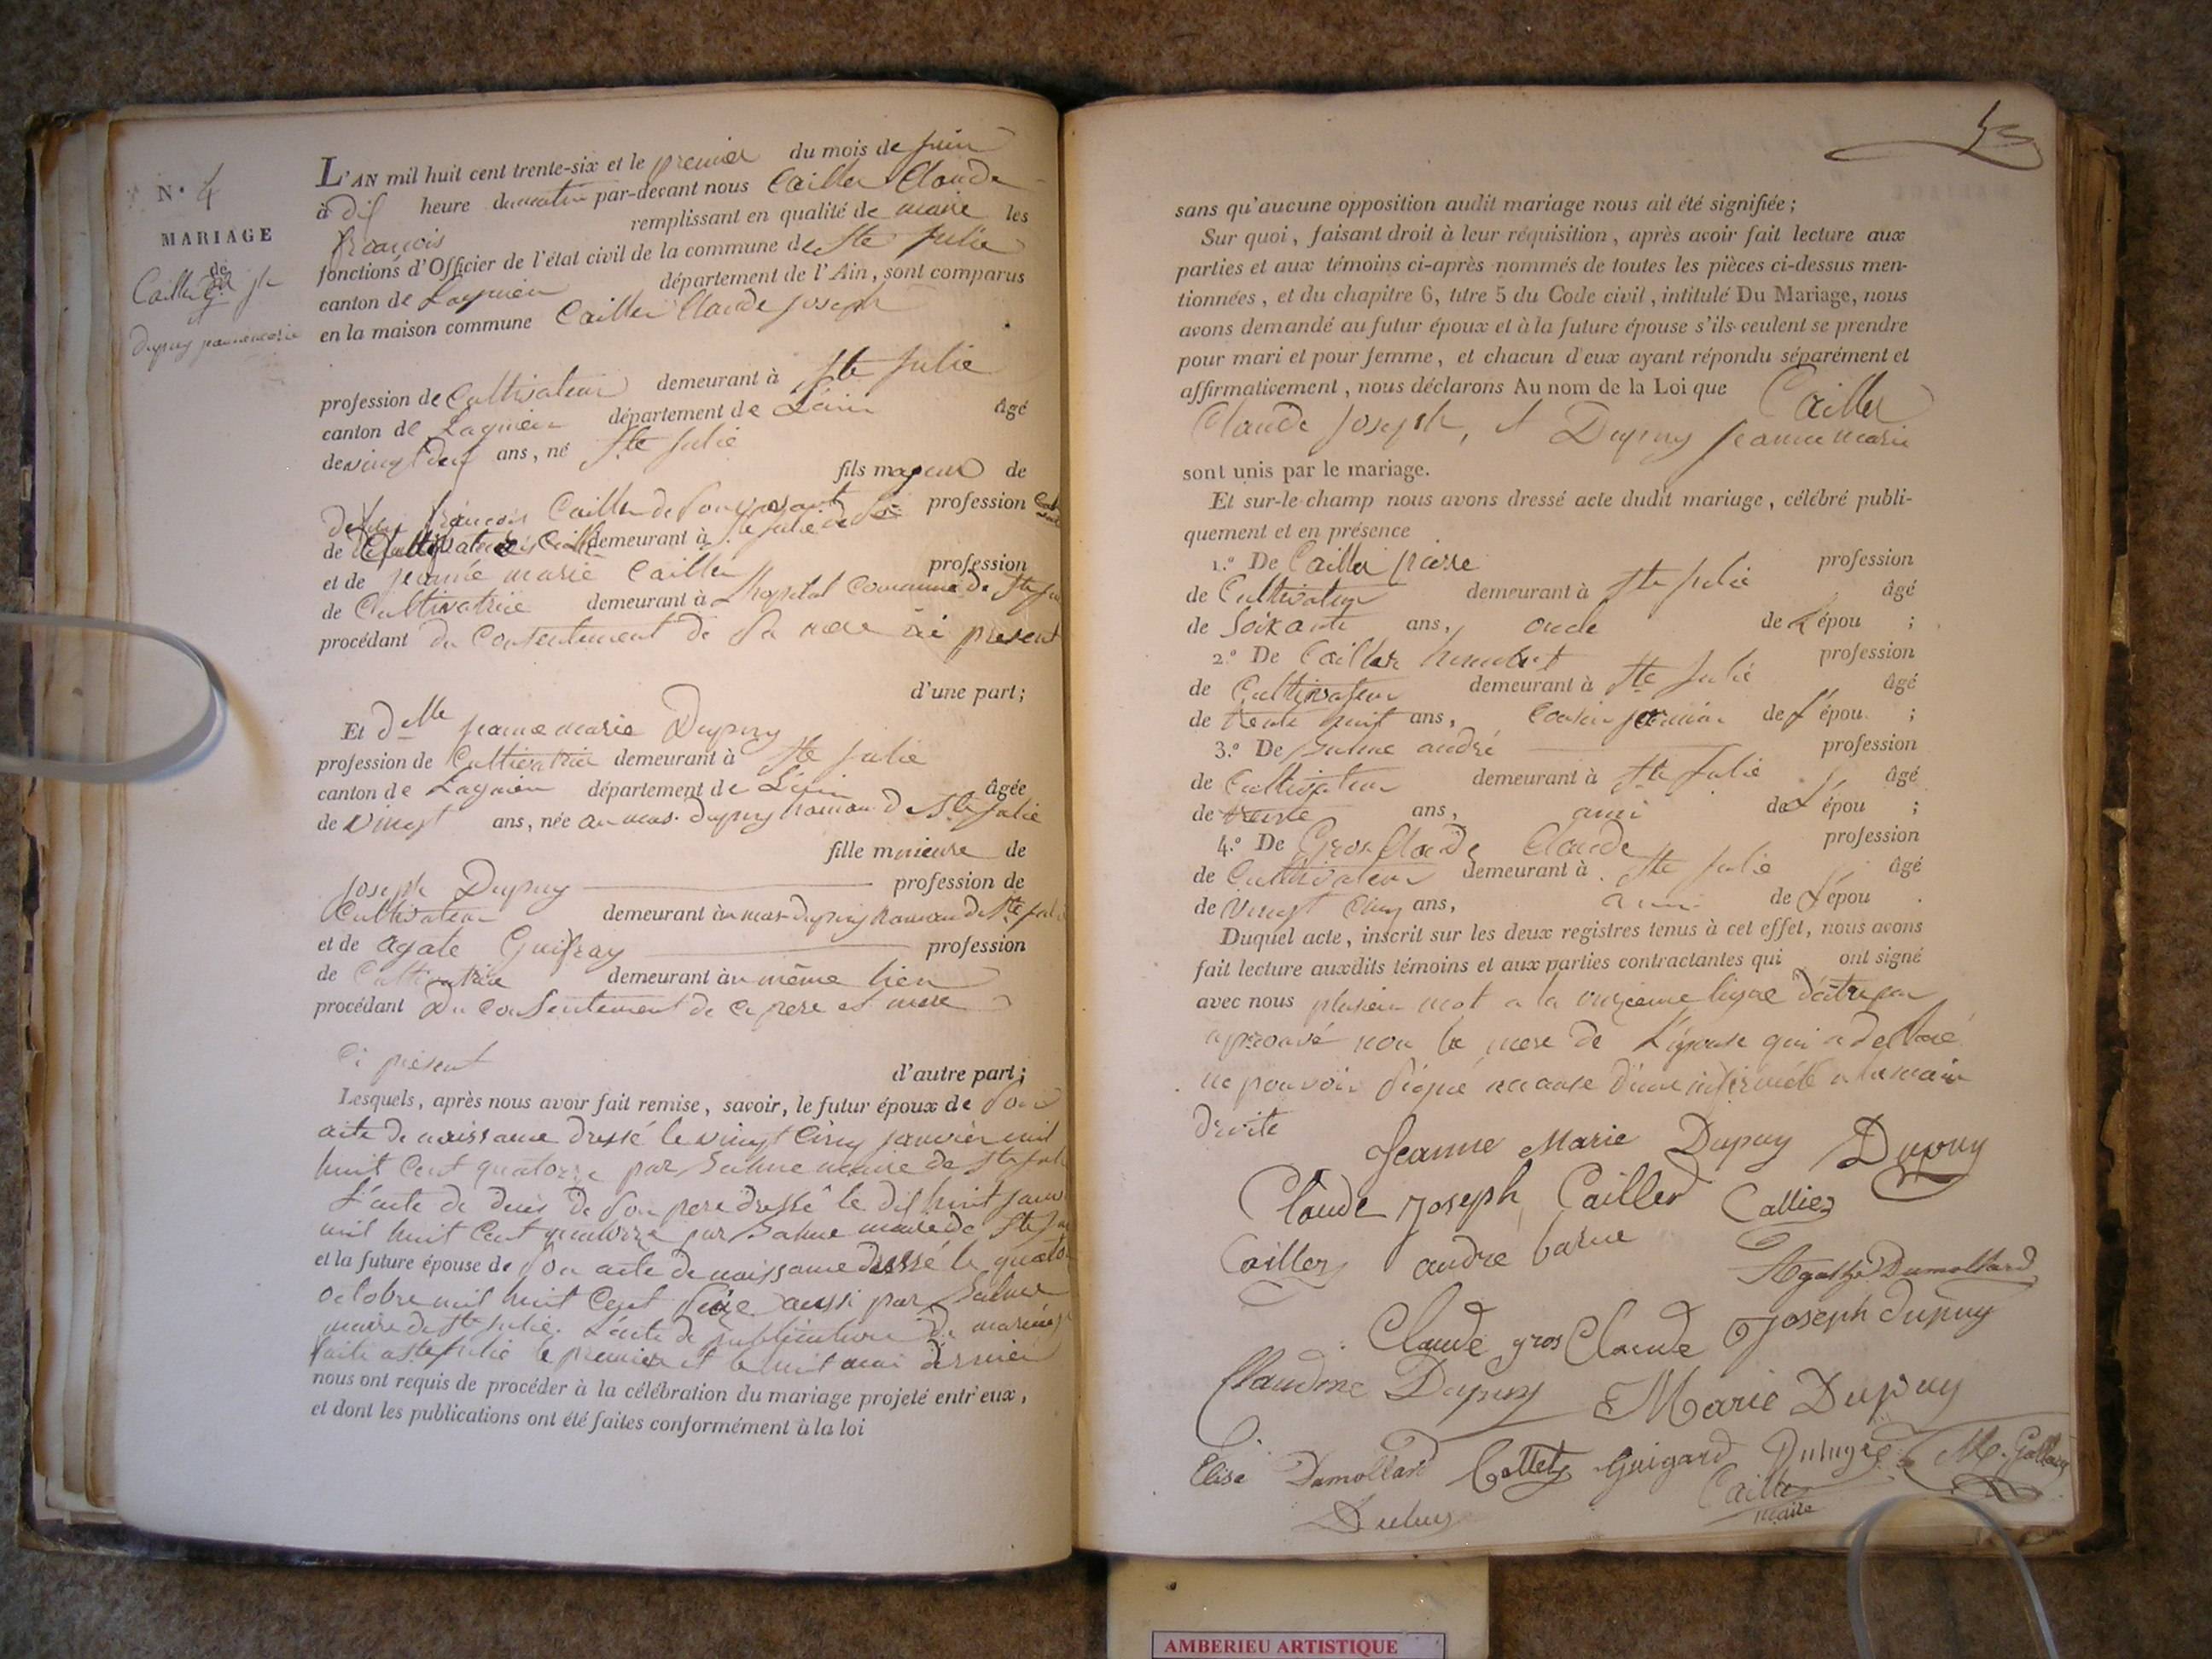 N.° 4
MARIAGE
de
Cailler
et
Dupuy jeanne marie
L'AN mil huit cent trente-six et le premier du mois de juin
à dix heure du matin par-devant nous Cailler Claude
françois remplissant en qualité de maire les
fonctions d'Officier de l'état civil de la commune de Ste julie
canton de Lagnieu département de l'Ain, sont comparus
en la maison commune Cailler Claude joseph
profession de Cultivateur demeurant à Ste julie
canton de Lagnieu département de L'ain âgé
de vingt deux ans, né Ste julie
fils majeur de
defun françois Cailler de Son vivant profession
de demeurant à Ste julie
et de jeanne marie Cailler profession
de Cultivatrice demeurant à Lhopital Commune de Ste
procédant du Consentement de Sa mere ici present
d'une part;
Et dlle jeanne marie Dupuy
profession de Cultivatrice demeurant à Ste julie
canton de Lagnieu département de L'ain âgée
de vingt ans, née au mas dupuy hamau de Ste julie
fille mineure de
joseph Dupuy profession de
Cultivateur demeurant au mas dupuy hamau de Ste
et de agate Guifray profession
de Cultivatrice demeurant au même lieu
procédant du Consentement de Ce pere et mere
Ci présent
d'autre part;
Lesquels, après nous avoir fait remise, savoir, le futur époux de Son
acte de naissame dressé le vingt Cinq janvier mil
huit Cent quatorze par Bahue maire de Ste
L'acte de deces de Son pere dressé le dix huit
mil huit Cent quatorze par Bahue maire de Ste
et la future épouse de Son acte de naissame dressé le
octobre mil huit Cent Seize aussi par Bahue
maire de Ste julie. L'acte de publication de
faite a Ste julie le premier et le huit mai dernier
nous ont requis de procéder à la célébration du mariage projeté entr'eux,
et dont les publications ont été faites conformément à la loi
sans qu'aucune opposition audit mariage nous ait été signifiée;
Sur quoi, faisant droit à leur réquisition, après avoir fait lecture aux
parties et aux témoins ci-après nommés de toutes les pièces ci-dessus men-
tionnées, et du chapitre 6, titre 5 du Code civil, intitulé Du Mariage, nous
avons demandé au futur époux et à la future épouse s'ils veulent se prendre
pour mari et pour femme, et chacun d'eux ayant répondu séparément et
affirmativement, nous déclarons Au nom de la Loi que Cailler
Claude joseph, et Dupuy jeanne marie
sont unis par le mariage.
Et sur-le-champ nous avons dressé acte dudit mariage, célébré publi-
quement et en présence
1.° De Cailler piere profession
de Cultivateur demeurant à Ste julie âgé
de Soixante ans, oncle de L'épou ;
2.° De Cailler humbert profession
de Cultivateur demeurant à Ste julie âgé
de trente huit ans, Cousin jermain de L'épou ;
3.° De andré profession
de Cultivateur demeurant à Ste julie âgé
de trente ans, ami de L'épou ;
4.° De Gros Claude Claude profession
de Cultivateur demeurant à Ste julie âgé
de vingt Cinq ans, ami de L'épou .
Duquel acte, inscrit sur les deux registres tenus à cet effet, nous avons
fait lecture auxdits témoins et aux parties contractantes qui ont signé
avec nous plusieur mot a la onzieme ligne
aprouvé non la mere de L'épouse qui a declaré
ne pouvoir Signé a cause d'une infirmité a la main
droite
Jeanne Marie Dupuy Dupuy
Claude joseph Cailler Callier
Cailler andré barue
Agathe Dumollard
Claude gros Claude joseph dupuy
Claudine Dupuy Marie Dupuy
Elise Dumollard Collet Guigard
Cailler
maire
AMBERIEU ARTISTIQUE